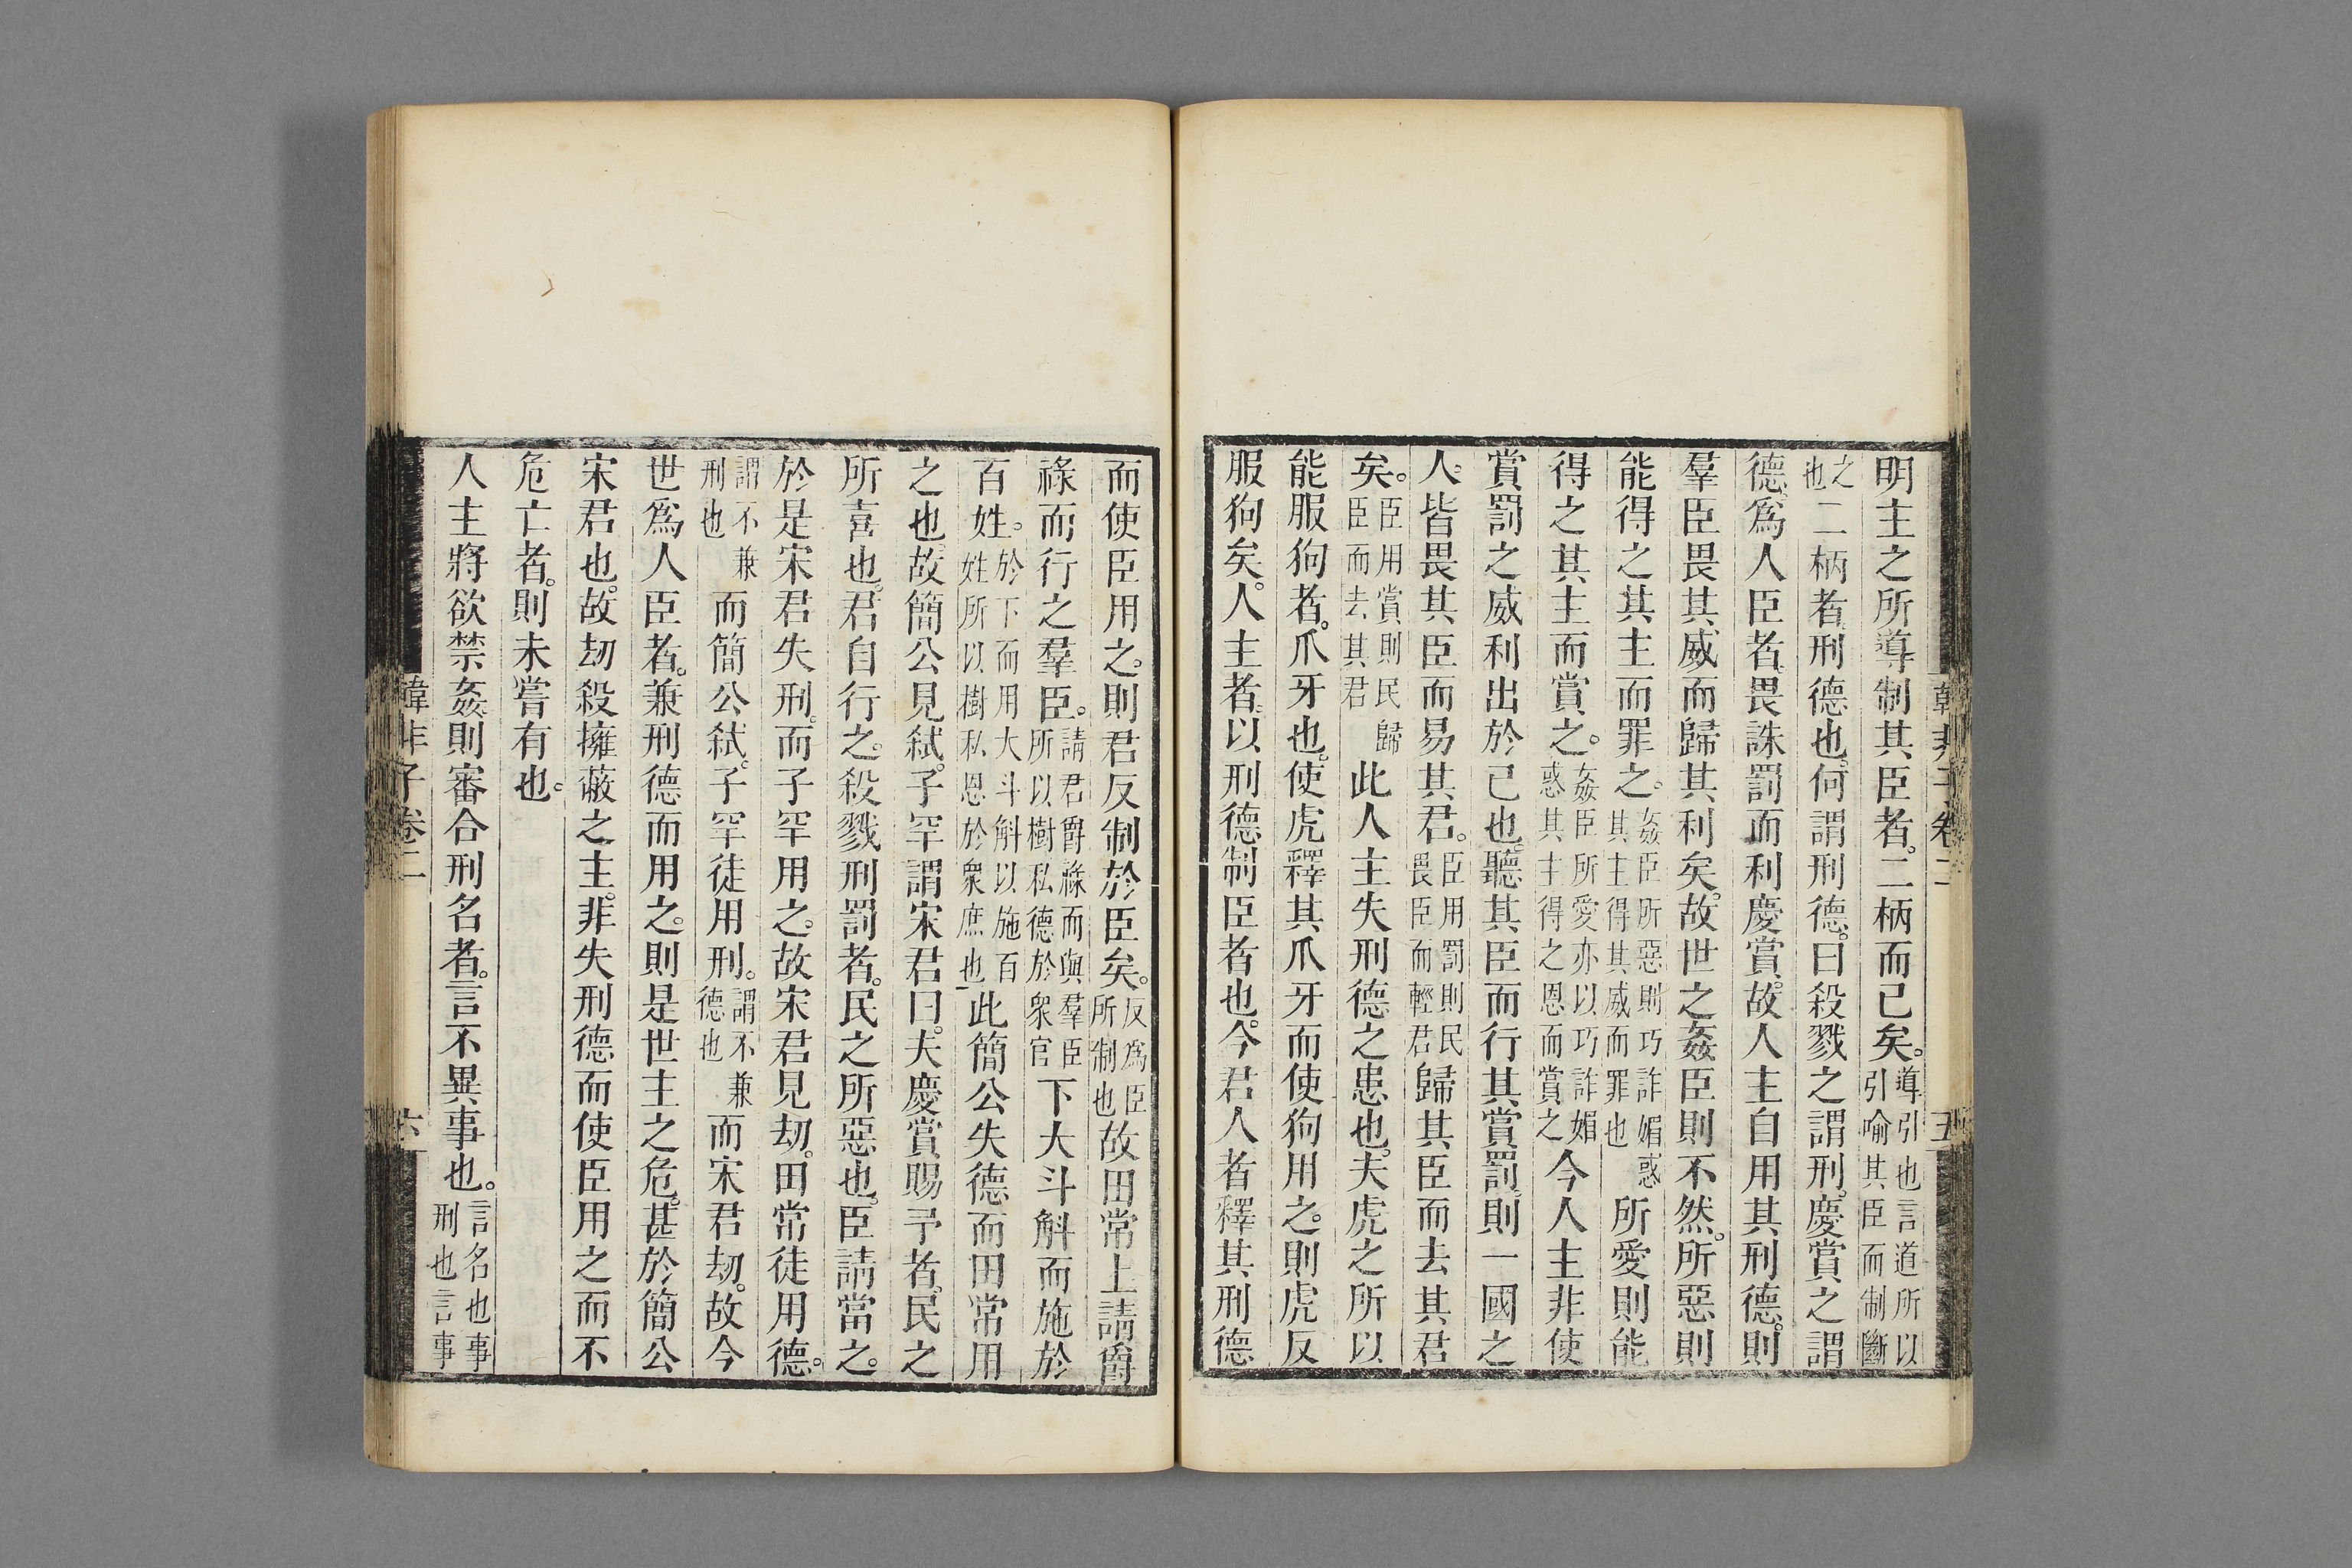 明主之所導制其臣者。二柄而已矣。導引也言道所以引喻其臣而制斷
之也二柄者。刑德也。何謂刑德。曰殺戮之謂刑。慶賞之謂
德。爲人臣者。畏誅罰而利慶賞。故人主自用其刑德。則
羣臣畏其威而歸其利矣。故世之姦臣則不然。所惡則
能得之其主而罪之。姦臣所惡則巧詐媚惑其主得其威而罪也所愛則能
得之其主而賞之。姦臣所愛亦以巧詐媚惑其主得之恩而賞之今人主非使
賞罰之威利出於已也。聽其臣而行其賞罰。則一國之
人。皆畏其臣而易其君。臣用罰則民畏臣而輕君歸其臣而去其君
矣。臣用賞則民歸臣而去其君此人主失刑德之患也。夫虎之所以
能服狗者。爪牙也。使虎釋其爪牙而使狗用之。則虎反
服狗矣。人主者。以刑德制臣者也。今君人者釋其刑德
韓非子卷二
五
而使臣用之。則君反制於臣矣。反爲臣所制也故田常上請爵
祿而行之羣臣。請君爵祿而與羣臣所以樹私德於衆官下大斗斛而施於
百姓。於下而用大斗斛以施百姓所以樹私恩於衆庶也此簡公失德而田常用
之也。故簡公見弑。子罕謂宋君曰。夫慶賞賜予者。民之
所喜也。君自行之。殺戮刑罰者。民之所惡也。臣請當之。
於是宋君失刑。而子罕用之。故宋君見劫。田常徒用德。
謂不兼刑也而簡公弑。子罕徒用刑。謂不兼德也而宋君劫。故今
世爲人臣者。兼刑德而用之。則是世主之危。甚於簡公
宋君也。故劫殺擁蔽之主。非失刑德而使臣用之而不
危亡者。則未嘗有也。
人主將欲禁姦則審合刑名者。言不異事也。言名也事刑也言事
韓非子卷二
六